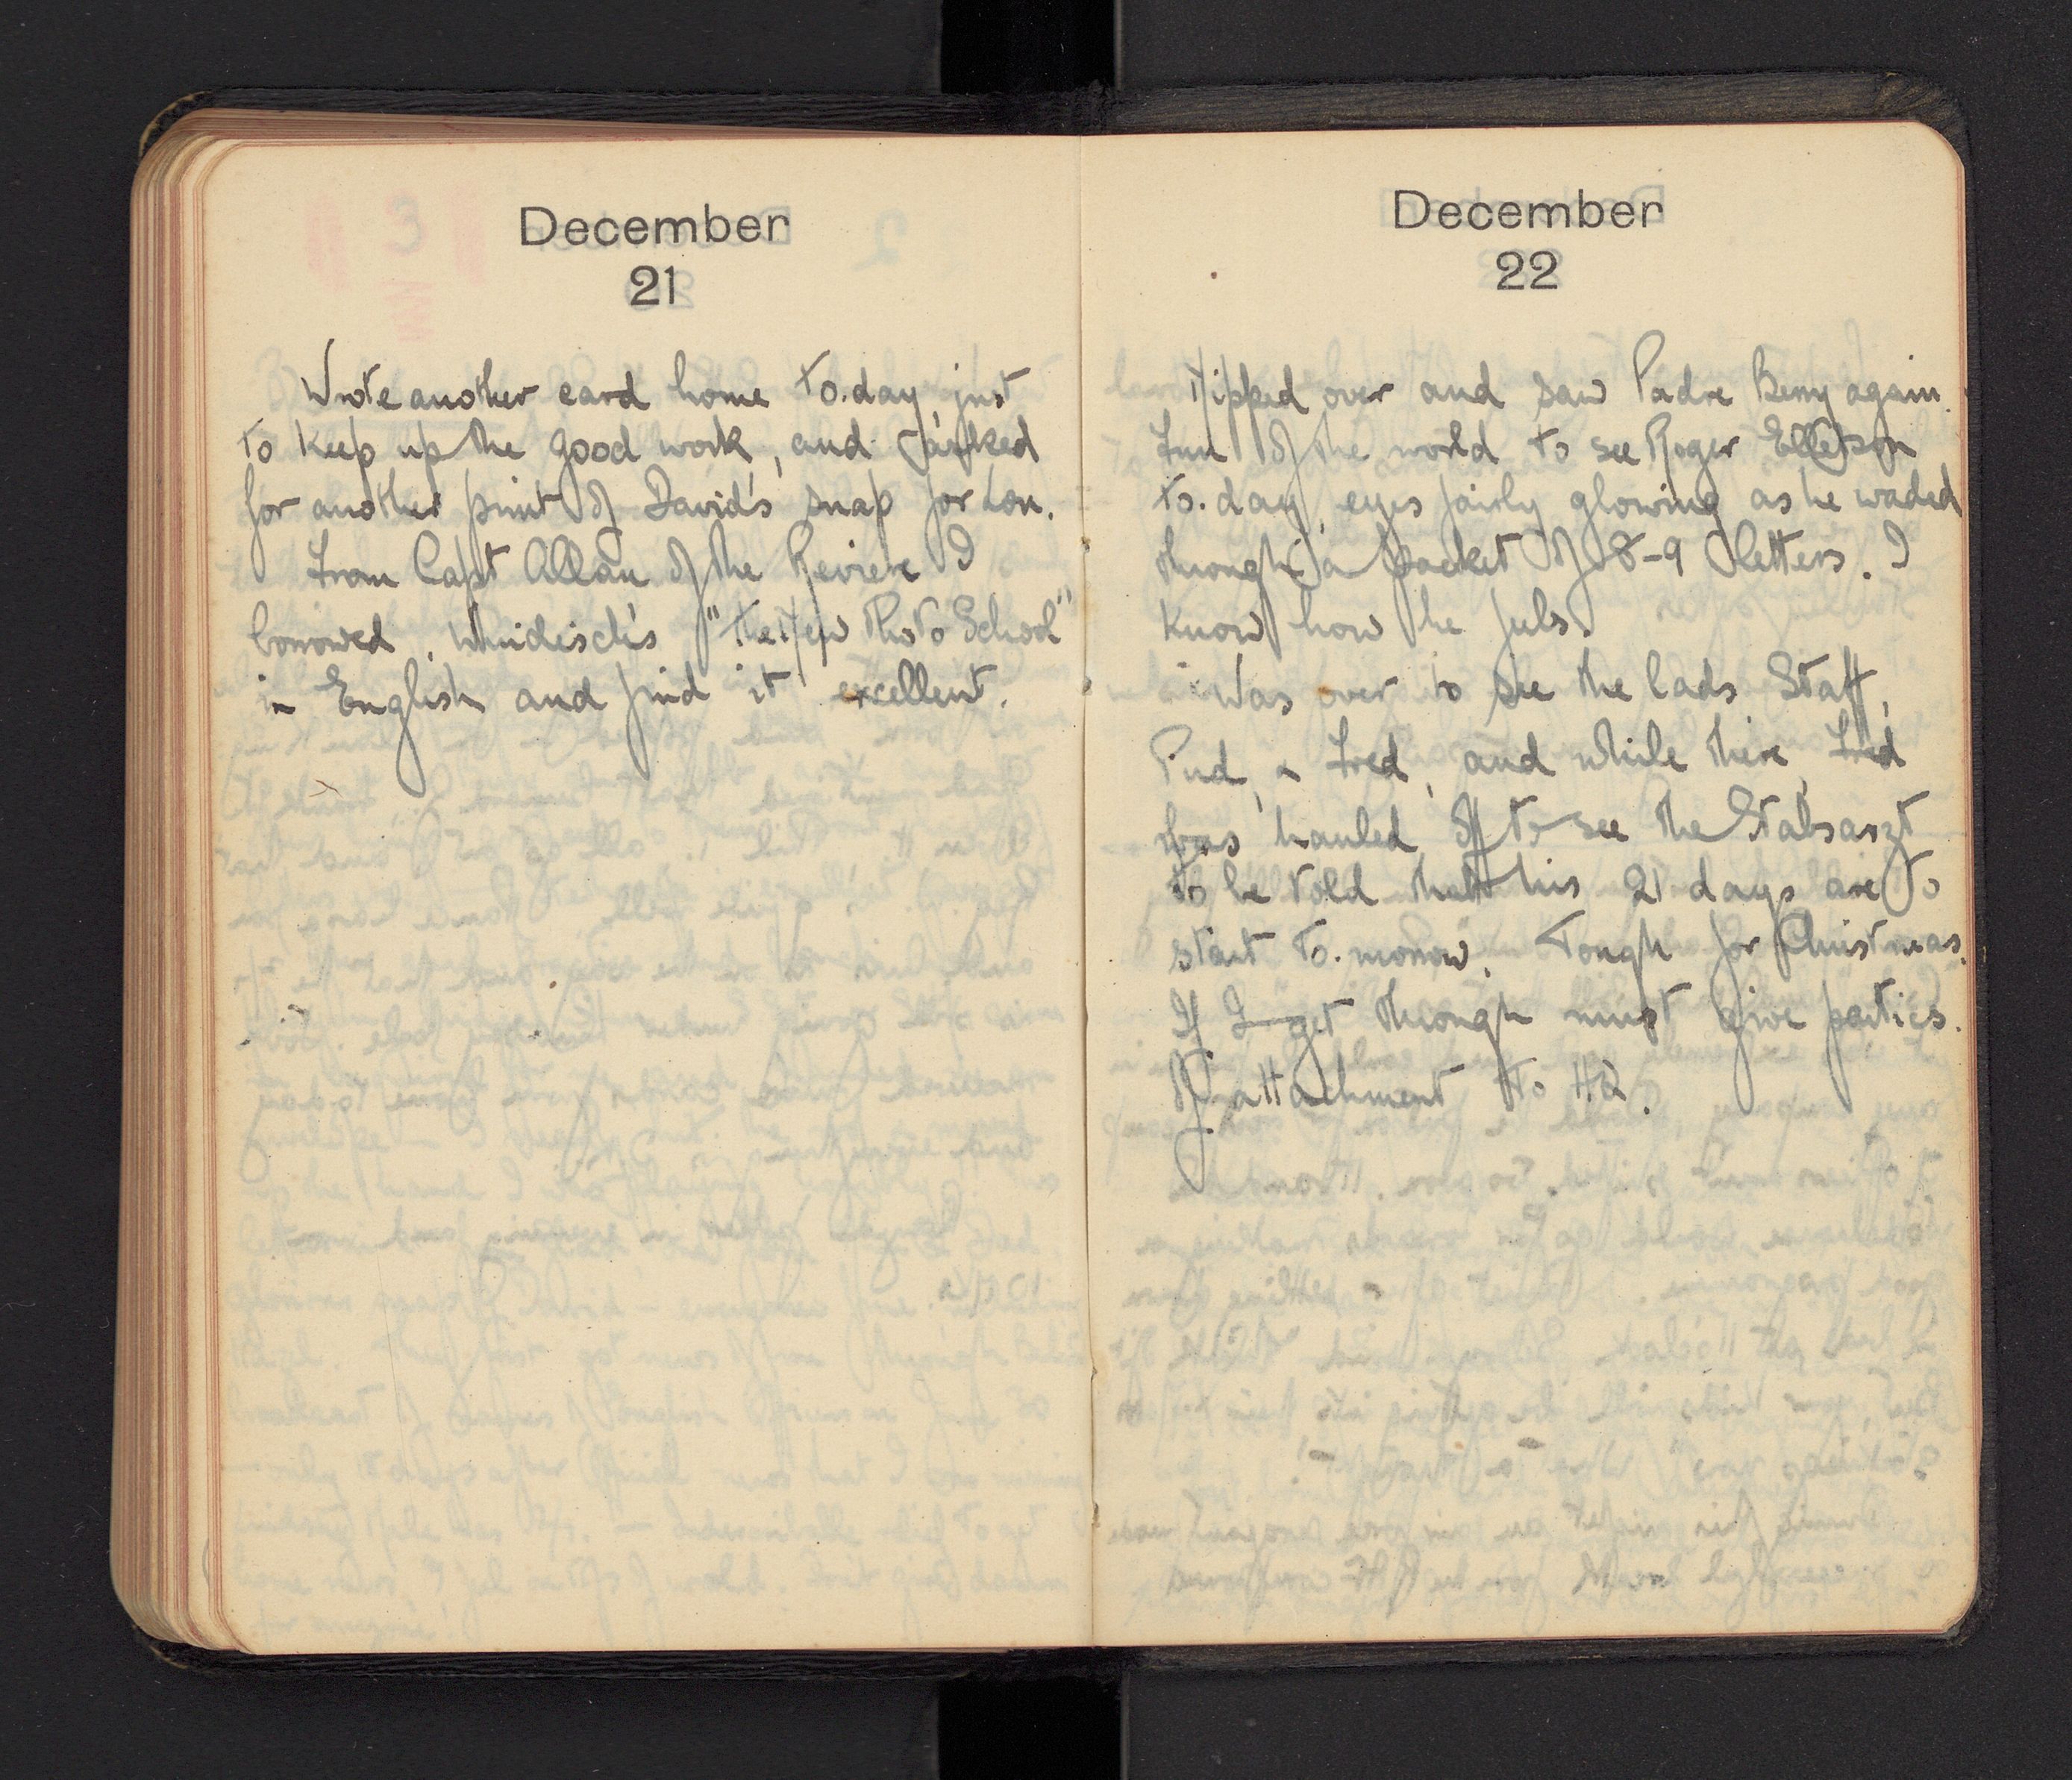 December
21
Wrote another card home to.day, just
to keep up the good work, and asked
for another print of David's snap for Lou.
From Capt Allan of the Reviere I
borrowed, "The New Photo School"
in English and find it excellent.
December
22
Nipped over and saw Padre Berry again.
Fun of the world to see Roger Ellerson
to.day, eyes fairly glowing as he waded
through a packet of 8-9 letters. I
know how he feels.
Was over to see the lads Staff,
Pud, & Fred, and while there, Fred
was hauled off to see the Stabsarzt
to be told that his 21 days are to
start to.morrow. Tough for Christmas.
If I get through must give parties.
of attachment to HQ.